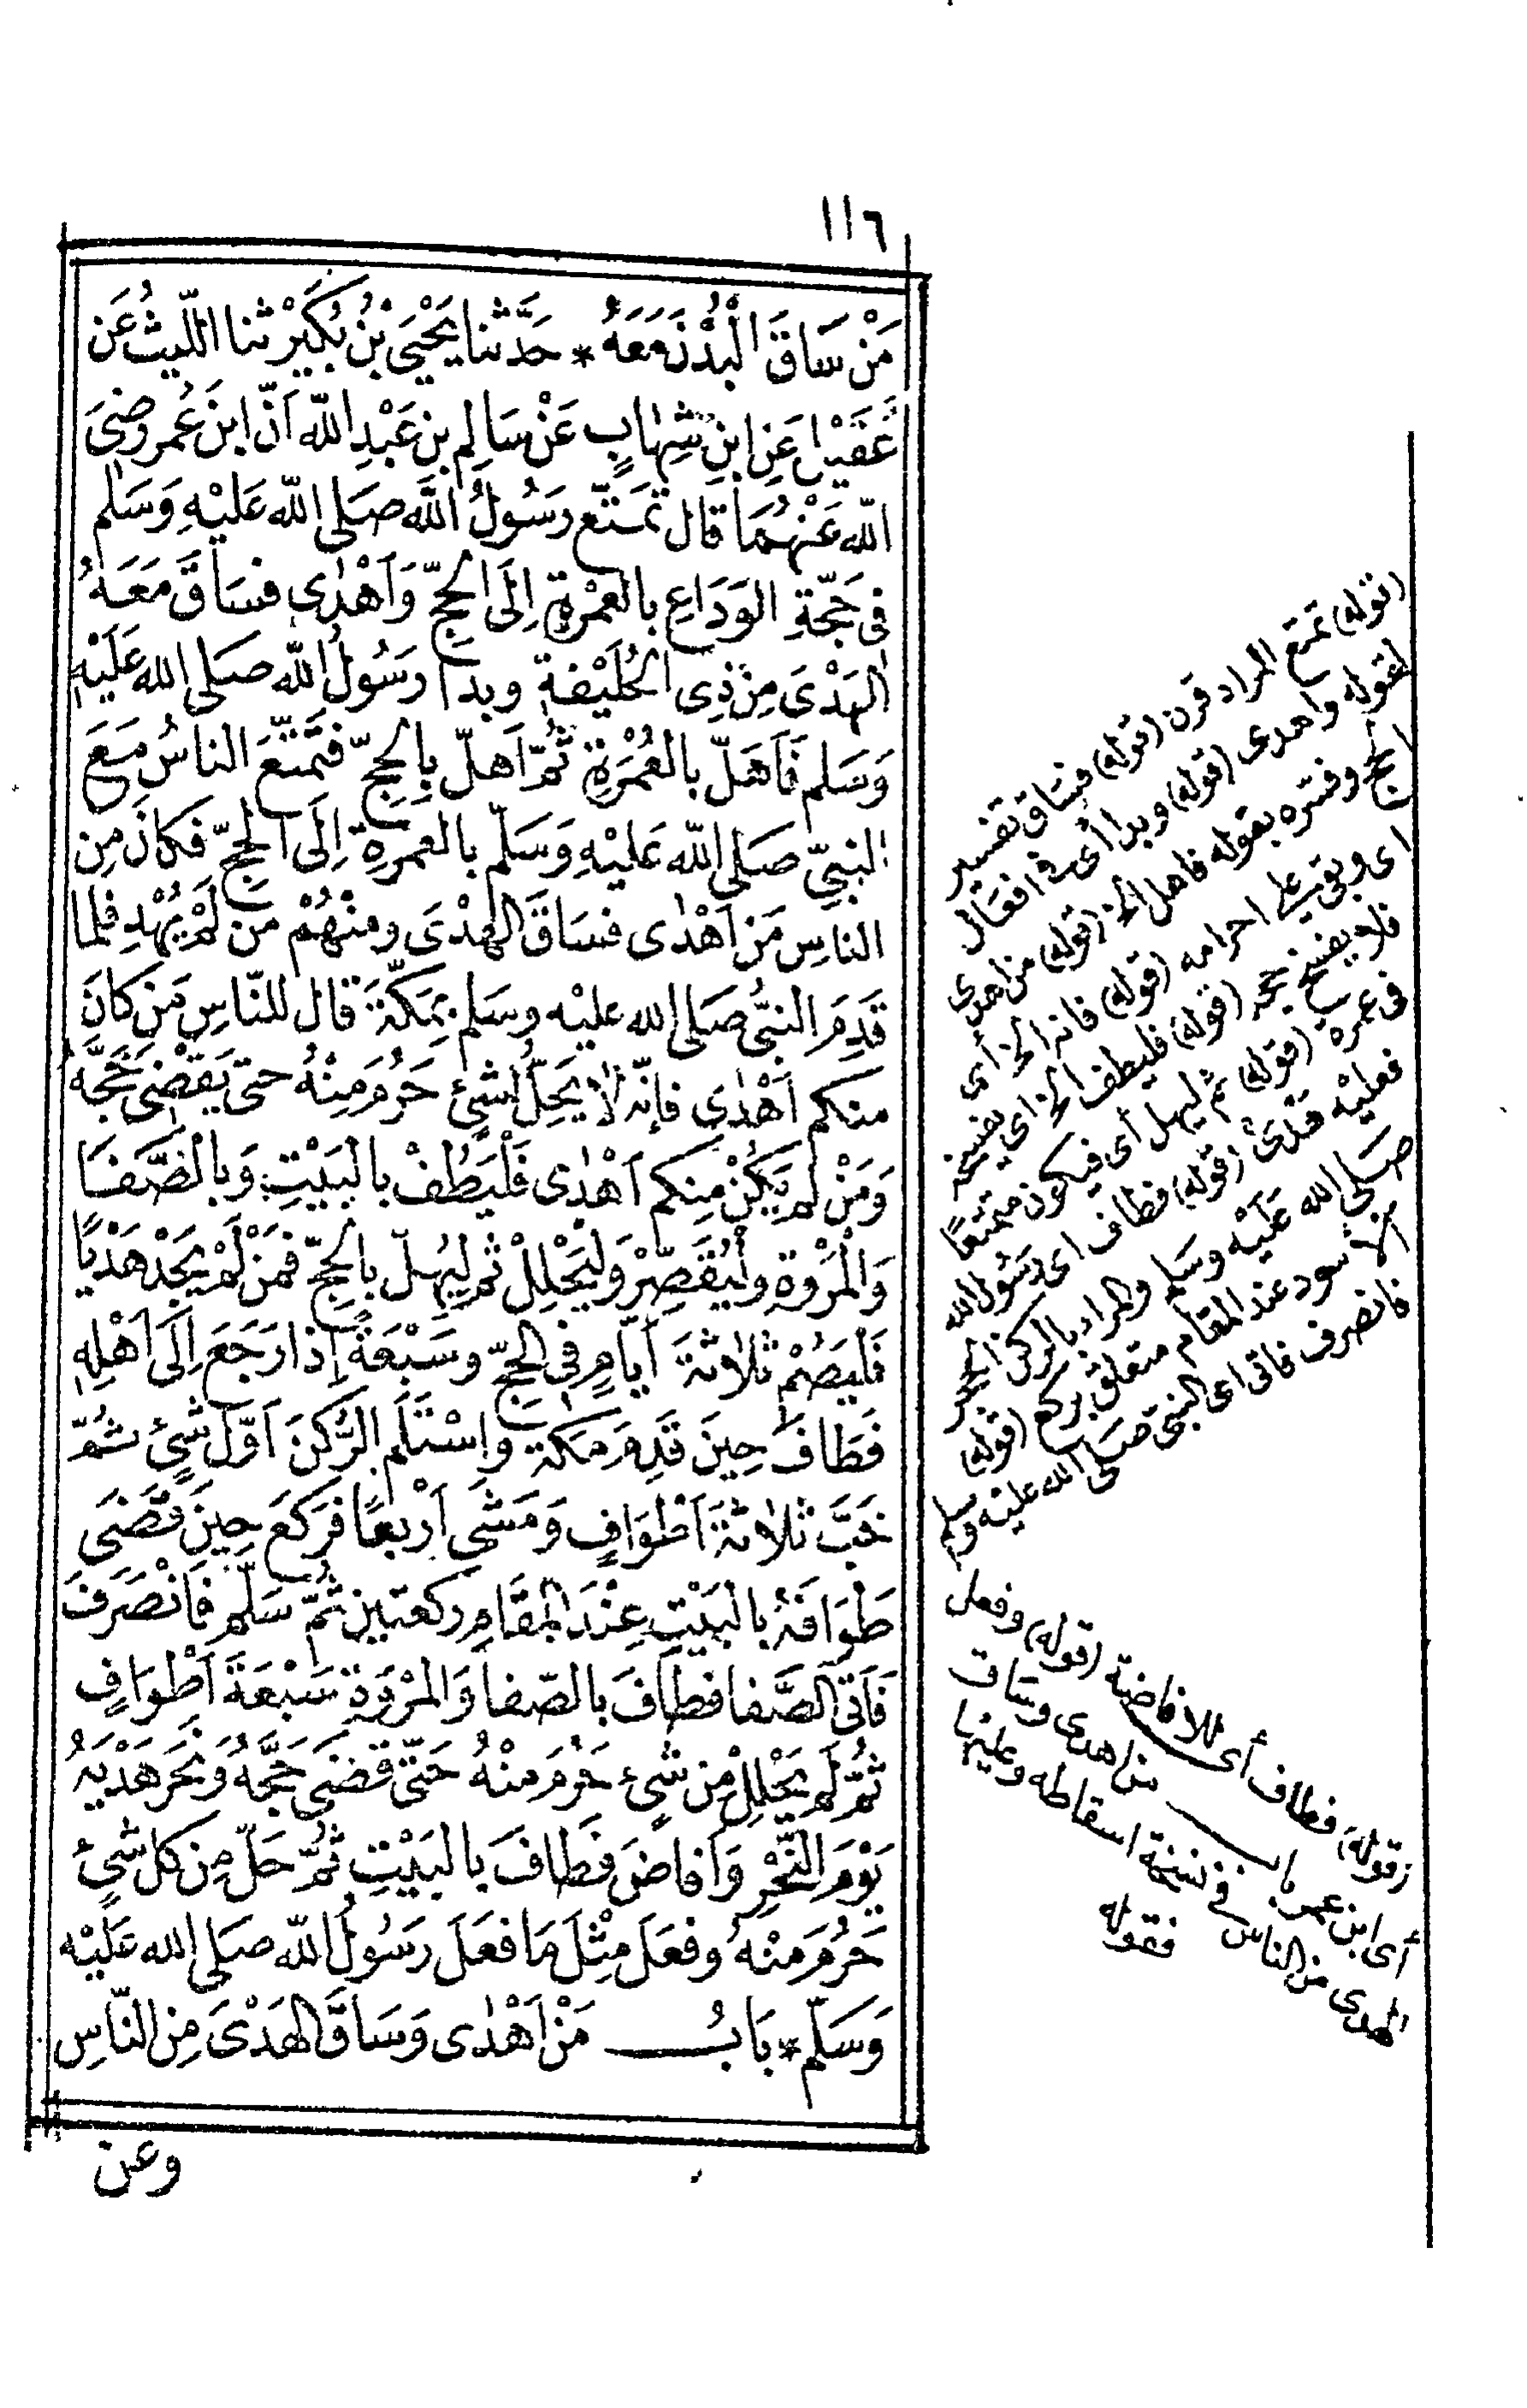 ١١٦
مَنْ سَاقَ الْبُدْنَ مَعَهُ * حَدَّثنا يَحْيَى بْنُ بُكَيْرْ ثنا اللّيثُ عَن
عُقَيْل عَنِ ابنِ شِهابٍ عَنْ سَالِم بنِ عَبْدِ اللّه اَنّ ابنَ عُمر رضِىَ
اللّه عَنْهُمَا قال تَمَتّع رَسُولُ اللّه صَلى اللّه عَليْهِ وَسَلم
فى حَجّةِ الوَدَاعِ بالعمْرةِ إلَى الحجّ وَاَهْدٰى فسَاقَ مَعَهُ
الهَدْىَ مِن ذِى الحُلَيْفةِ وبدا رَسُولُ اللّه صَلى الله عَلَيْهِ
وَسَلم فَاَهَلّ بالعُمْرَةِ ثُمّ اَهلّ بِالحجّ فتَمتّعَ الناسُ مَعَ
النبىِّ صَلى اللّه عَليْهِ وَسَلّم بالعمرةِ إلَى الحجّ فكانَ مِن
الناسِ مَن اَهْدٰى فسَاقَ الهدْىَ ومنْهُمْ من لمْ يُهْدِ فلما
قَدِمَ النبىُّ صَلى الله عليْه وسَلم بمَكّةَ قال للنّاسِ مَن كانَ
منكم اَهْدٰى فإنّه لا يَحِلُّ لشئٍ حَرُمَ مِنْهُ حتى يَقْضِىَ حَجَّهُ
وَمَنْ لم يَكُنْ مِنكم اَهْدٰى فَلْيَطُفْ بالبَيْتِ وَبالصَّفَا
وَالْمرْوةِ ولْيُقَصِّرْ وَلْيَحْلِلْ ثم لِيُهِلّ بالحجّ فمَنْ لمْ يَجْد هَدْيًا
فَليَصُمْ ثلاثةَ أيّامٍ فِى الحجّ وسَبْعَةً إذا رَجَعَ إلَى اَهْلِهِ
فَطَافَ حِينَ قَدِمَ مَكة واسْتَلَم الرُّكنَ اَوّلَ شئٍ ثُمّ
خَبَّ ثلاثةَ اَطْوَافٍ وَمَشَى اَرْبعًا فرَكَعَ حِينَ قَضَى
طَوَافَهُ بالبَيْتِ عِنْدَ المقَامِ ركعتين ثُمّ سَلّم فَانْصَرَفَ
فَاَتى الصَّفا فطافَ بالصّفا وَالمرْوَةِ سَبْعَةَ اَطْوَافٍ
ثُمّ لم يَحْلِلْ مِن شئٍ حَرُمَ منْهُ حَتّى قَضَى حَجَّهُ وَنَحَر هَدْيَهُ
يَوْمَ النَّحْرِ وَاَفاضَ فَطافَ بالبَيْتِ ثُمّ حَلّ مِن كل شئٍ
حَرُمَ مِنْهُ وفعَلَ مِثْلَ مَا فعَلَ رَسُولُ اللّه صَلى الله عَلَيْه
وَسَلّم * بَابُ مَنْ اَهْدٰى وَسَاقَ الهَدْىَ مِن النّاسِ
وعن
(قوله) تمتع المراد قرن (قوله) فساق تفسير
لقوله واهدى (قوله) وبدا أى فى افعال
الحج وفسّره بقوله فاهل الخ (قوله) من اهدى
اى وبقى على احرامه (قوله) فانه الخ أى
فلا يفسخ حجه (قوله) فليطف الخ اى يفسخه
فى عمرة (قوله) ثم ليهل أى فيكون متمتعًا
فعليْه هَدْىٌ (قوله) فطاف اى رسُول الله
صَلى الله عَلَيْه وسَلم والمراد بالركن الحجر
الاسود عند المقام متعلق بركع (قوله)
فانصرف فاتى اى النبى صَلى الله عليه وسلم
(قوله) فطاف أى للافاضة (قوله) وفعل
أى ابن عمر باب من اهدى وساق
الهدى من الناس فى نسخة اسقاطه وعليها
فقوله